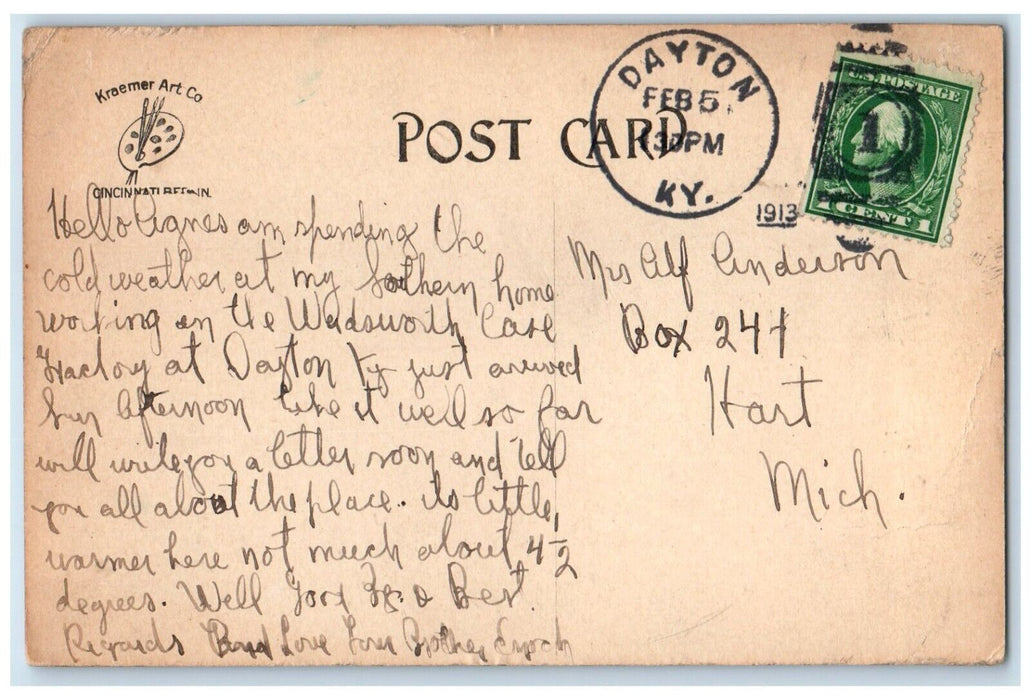 Kraemer Art Co
CINCINNATI
POST CARD
DAYTON
FEB 5
30PM
KY.
1913
U.S. POSTAGE
1
CENT 1
Hello Agnes am spending the
cold weather at my Southern home
working in the Wadsworth Case
Factory at Dayton Ky just arrived
Sun Afternoon like it well so far
will write you a letter soon and tell
you all about the place. its little
warmer here not much about 4 1/2
degrees. Well Good Best
Regards and Love Your Brother Enoch
Mrs Alf Anderson
Box 244
Hart
Mich.